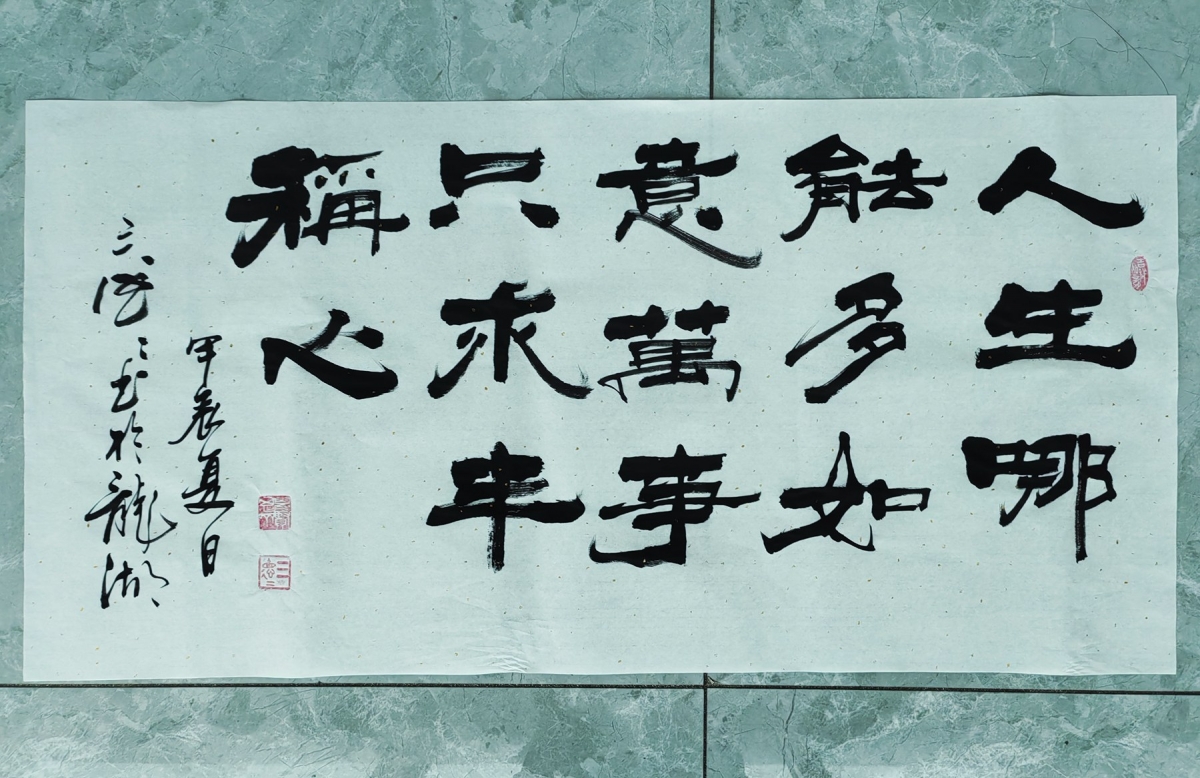 人生哪
能多如
意萬事
只求半
稱心
甲辰夏日
書於龍湖